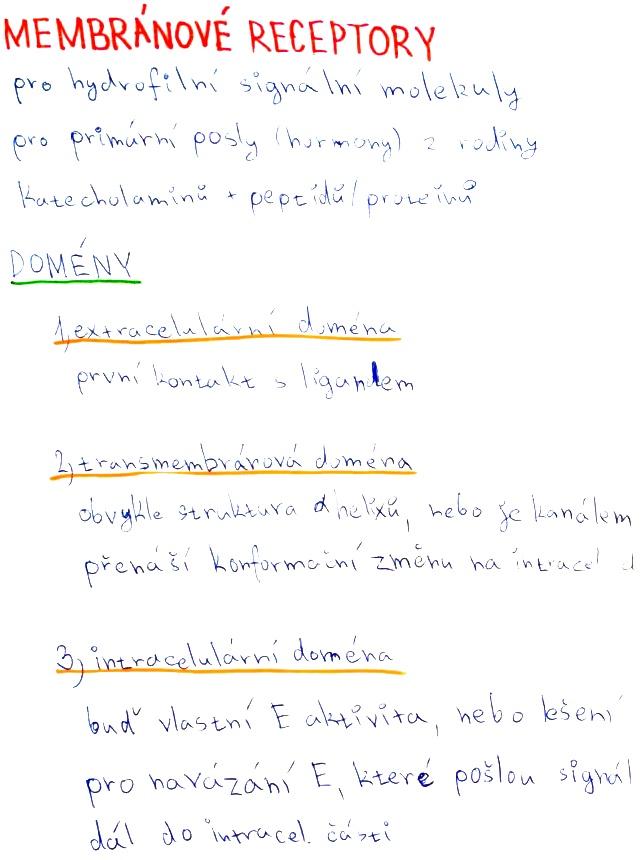 MEMBRÁNOVÉ RECEPTORY
pro hydrofilní signální molekuly
pro primární posly (hormony) z rodiny
katecholaminů + peptidů/proteinů
DOMÉNY
1, extracelulární doména
první kontakt s ligandem
2, transmembrárová doména
obvykle struktura α helixů, nebo je kanálem
přenáší konformační změnu na intracel
3, intracelulární doména
buď vlastní E aktivita, nebo lešení
pro navázání E, které pošlou signál
dál do intracel. části